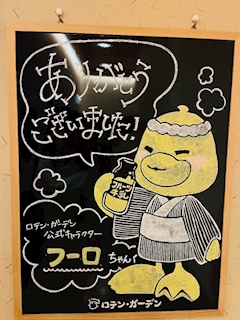 ありがとう
ございました!
フルーツ
牛乳
ロテン・ガーデン
公式キャラクター
フーロ ちゃん
ロテン・ガーデン